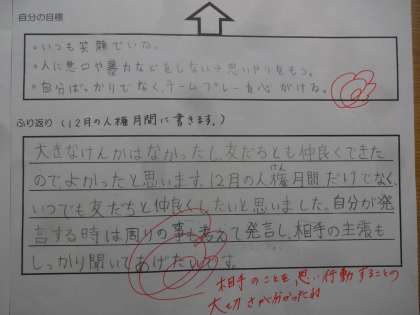 自分の目標
・いつも笑顔でいる。
・人に悪口や暴力などをしない→思いやりをもつ。
・自分ばっかりでなく、チームプレーを心がける。
ふり返り(12月の人権月間に書きます。)
大きなけんかはなかったし、友だちとも仲良くできた
のでよかったと思います。12月の人権月間だけでなく、
けん
いつでも友だちと仲良くしたいと思いました。自分が発
言する時は周りの事も考えて発言し、相手の主張も
しっかり聞いてあげたいです。
相手のことを思い行動することの
大切さが分かったね